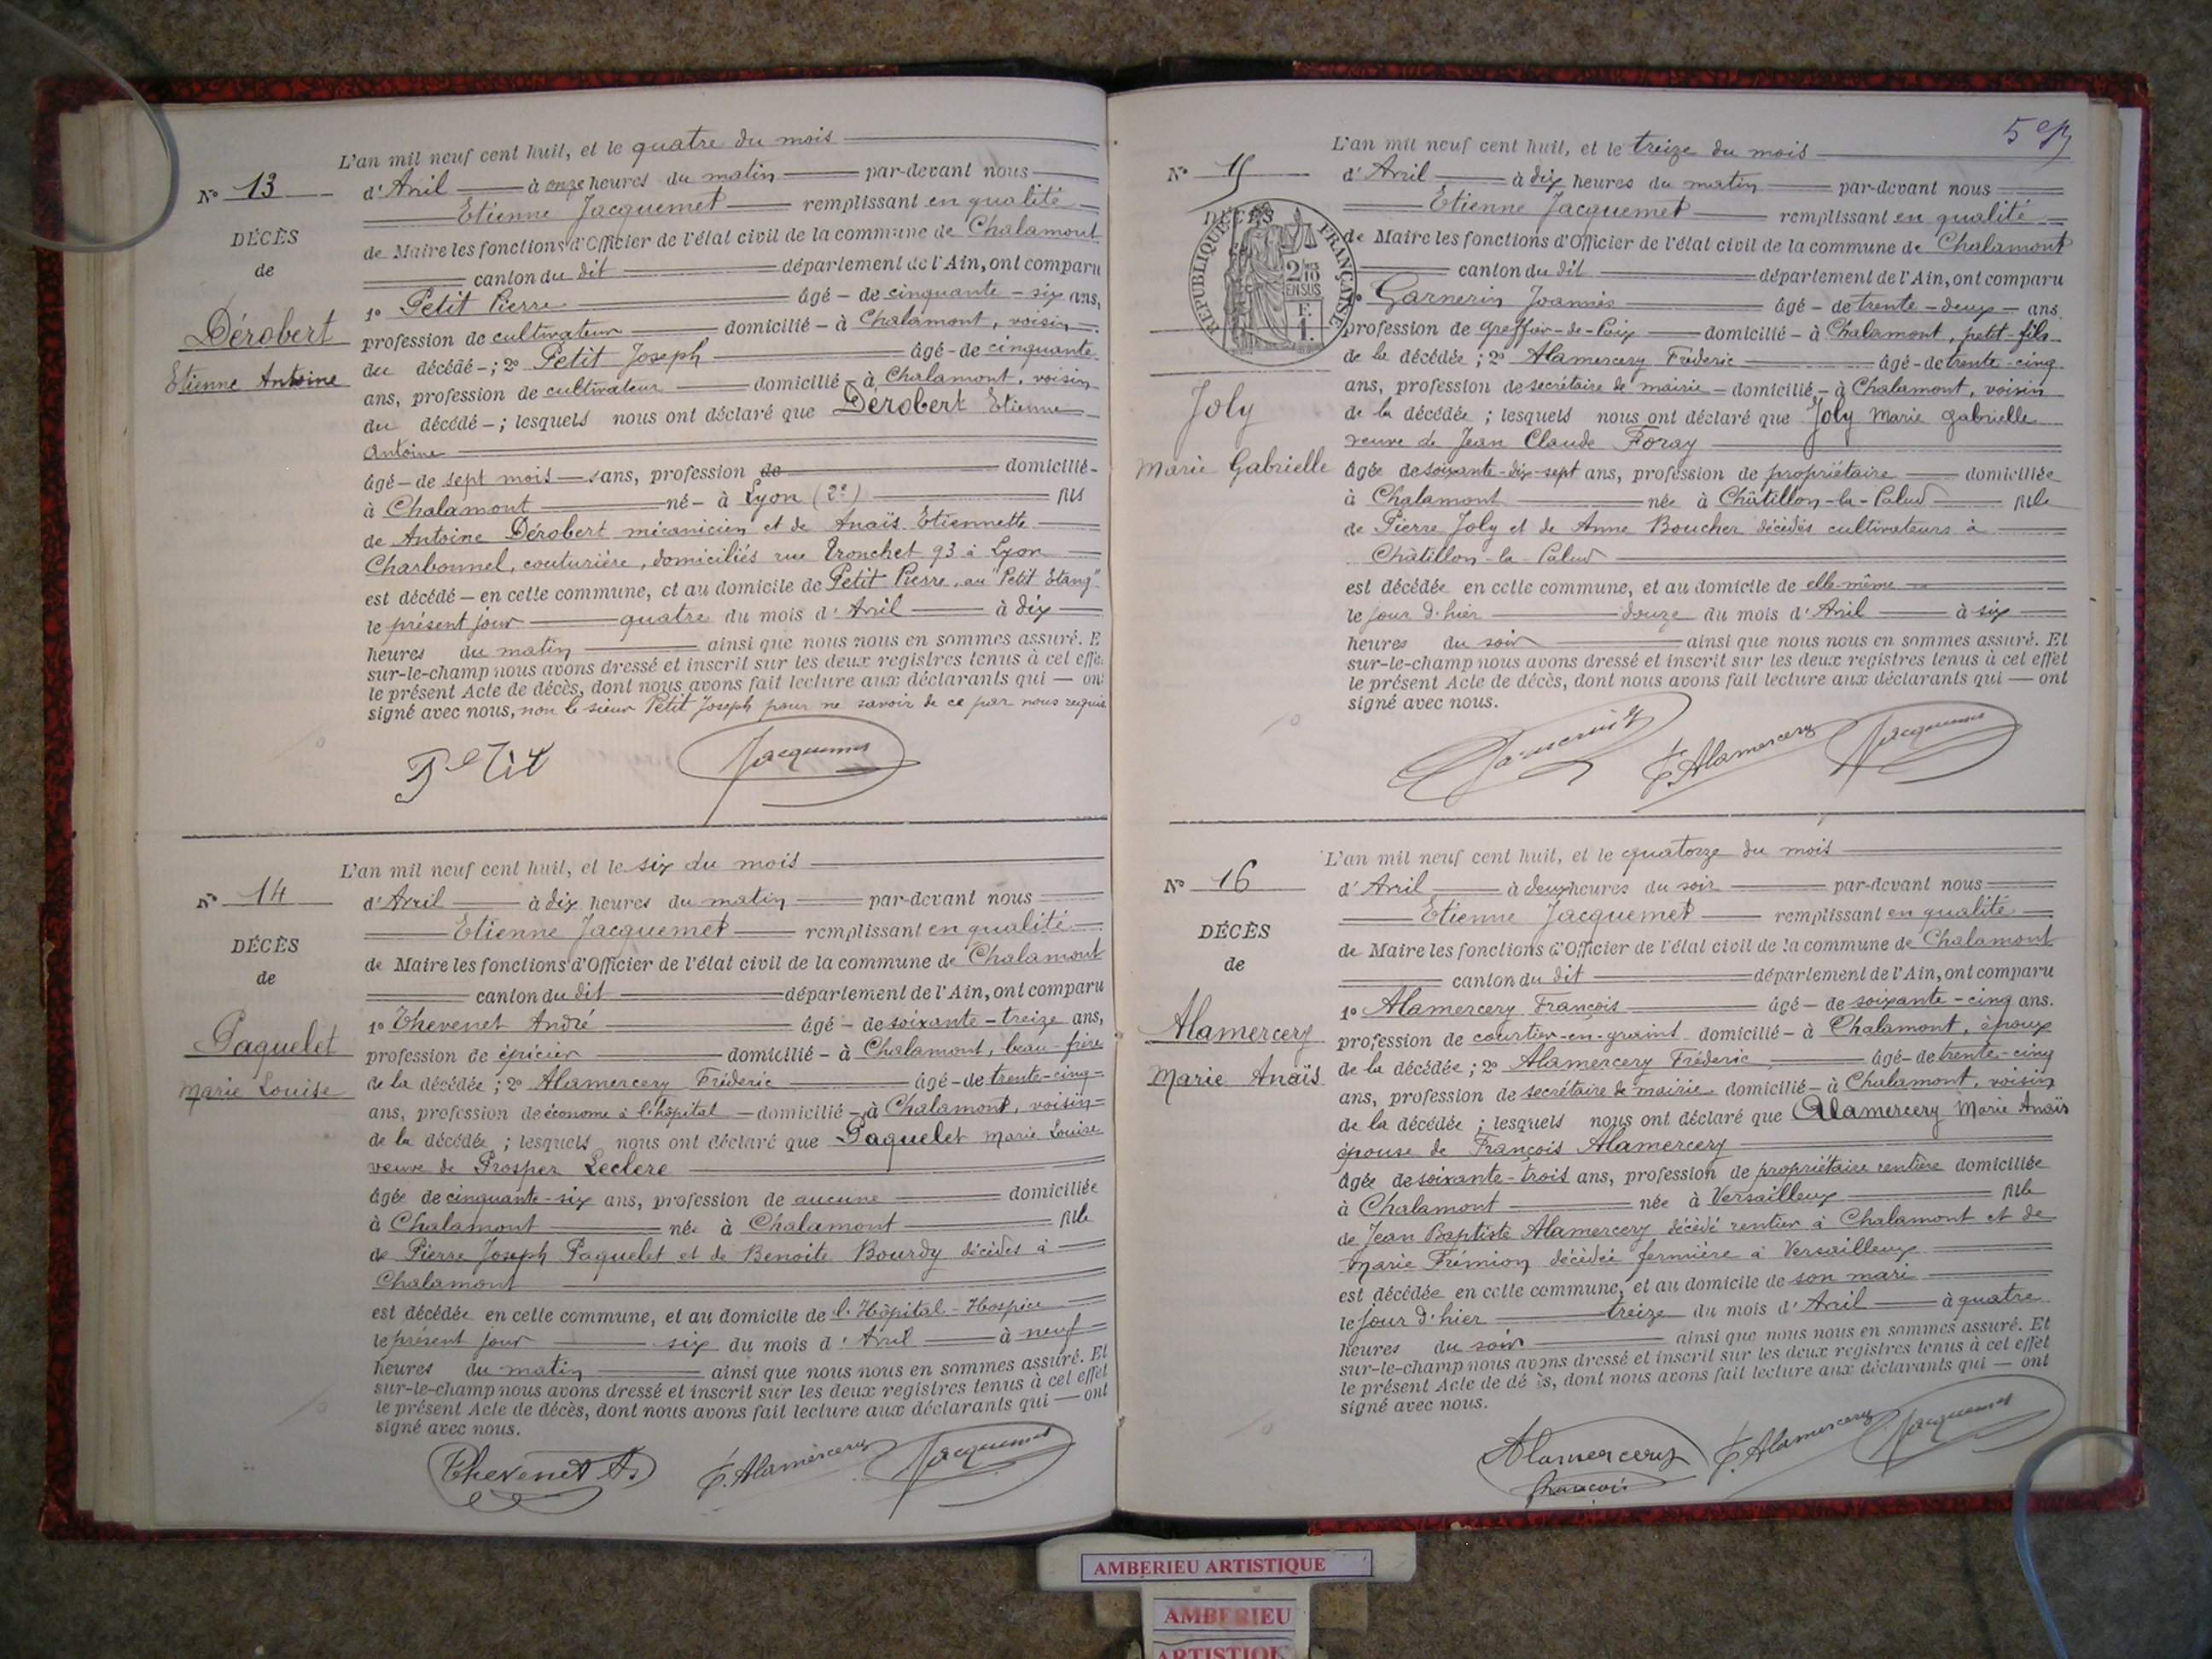 L'an mil neuf cent huit, et le quatre du mois
N° 13
d'Avril à onze heures du matin par-devant nous
Etienne Jacquemet remplissant en qualité
DÉCÈS
de Maire les fonctions d'Officier de l'état civil de la commune de Chalamont
de
canton du dit département de l'Ain, ont comparu
1° Petit Pierre âgé - de cinquante - six ans,
Dérobert
profession de cultivateur domicilié - à Chalamont, voisin
du décédé - ; 2° Petit Joseph âgé - de cinquante
Etienne Antoine
ans, profession de cultivateur domicilié - à Chalamont, voisin
du décédé - ; lesquels nous ont déclaré que Dérobert Etienne
Antoine
âgé - de sept mois ans, profession de domicilié -
à Chalamont né - à Lyon (2e) fils
de Antoine Dérobert mécanicien et de Anaïs Etiennette
Charbonnel, couturière, domiciliés rue Tronchet 93 à Lyon
est décédé - en cette commune, et au domicile de Petit Pierre, au "Petit Etang"
le présent jour quatre du mois d'Avril à dix
heures du matin ainsi que nous nous en sommes assuré. E
sur-le-champ nous avons dressé et inscrit sur les deux registres tenus à cet effe
le présent Acte de décès, dont nous avons fait lecture aux déclarants qui — on
signé avec nous, non le sieur Petit Joseph pour ne savoir de ce par nous requis
Petit Jacquemet
L'an mil neuf cent huit, et le six du mois
N° 14
d'Avril à dix heures du matin par-devant nous
Etienne Jacquemet remplissant en qualité
DÉCÈS
de Maire les fonctions d'Officier de l'état civil de la commune de Chalamont
de
canton du dit département de l'Ain, ont comparu
1° Thevenet André âgé - de soixante - treize ans,
Paquelet
profession de épicier domicilié - à Chalamont, beau-frère
Marie Louise
de la décédée ; 2° Alamercery Fréderic âgé - de trente-cinq
ans, profession de économe à l'hôpital domicilié - à Chalamont, voisin
de la décédée ; lesquels nous ont déclaré que Paquelet Marie Louise
veuve de Prosper Leclere
âgée de cinquante-six ans, profession de aucune domiciliée
à Chalamont née à Chalamont fille
de Pierre Joseph Paquelet et de Benoite Bourdy décédés à
Chalamont
est décédée en cette commune, et au domicile de l'Hôpital-Hospice
le présent jour six du mois d'Avril à neuf
heures du matin ainsi que nous nous en sommes assuré. Et
sur-le-champ nous avons dressé et inscrit sur les deux registres tenus à cet effet
le présent Acte de décès, dont nous avons fait lecture aux déclarants qui — ont
signé avec nous.
Thevenet A. F. Alamercery Jacquemet
L'an mil neuf cent huit, et le treize du mois
N° 15
d'Avril à dix heures du matin par-devant nous
Etienne Jacquemet remplissant en qualité
DÉCÈS
RÉPUBLIQUE FRANÇAISE
2/10
EN SUS
F.
1.
de Maire les fonctions d'Officier de l'état civil de la commune de Chalamont
canton du dit département de l'Ain, ont comparu
1° Garnerin Joannès âgé - de trente - deux - ans.
profession de greffier-de-Paix domicilié - à Chalamont, petit-fils
de la décédée ; 2° Alamercery Fréderic âgé - de trente-cinq
ans, profession de secrétaire de mairie - domicilié - à Chalamont, voisin
Joly
de la décédée ; lesquels nous ont déclaré que Joly Marie Gabrielle
veuve de Jean Claude Foray
Marie Gabrielle
âgée de soixante-dix-sept ans, profession de propriétaire domiciliée
à Chalamont née à Châtillon-la-Palud fille
de Pierre Joly et de Anne Boucher décédés cultivateurs à
Châtillon-la-Palud
est décédée en cette commune, et au domicile de elle-même
le jour d'hier douze du mois d'Avril à six
heures du soir ainsi que nous nous en sommes assuré. Et
sur-le-champ nous avons dressé et inscrit sur les deux registres tenus à cet effet
le présent Acte de décès, dont nous avons fait lecture aux déclarants qui — ont
signé avec nous.
F. Alamercery Jacquemet
L'an mil neuf cent huit, et le quatorze du mois
N° 16
d'Avril à deux heures du soir par-devant nous
Etienne Jacquemet remplissant en qualité
DÉCÈS
de Maire les fonctions d'Officier de l'état civil de la commune de Chalamont
de
canton du dit département de l'Ain, ont comparu
1° Alamercery François âgé - de soixante - cinq ans.
Alamercery
profession de courtier-en-grains domicilié - à Chalamont, époux
Marie Anaïs
de la décédée ; 2° Alamercery Fréderic âgé - de trente-cinq
ans, profession de secrétaire de mairie domicilié - à Chalamont, voisin
de la décédée ; lesquels nous ont déclaré que Alamercery Marie Anaïs
épouse de François Alamercery
âgée de soixante-trois ans, profession de propriétaire rentière domiciliée
à Chalamont née à Versailleux fille
de Jean Baptiste Alamercery décédé rentier à Chalamont et de
Marie Frémion décédée fermière à Versailleux
est décédée en cette commune, et au domicile de son mari
le jour d'hier treize du mois d'Avril à quatre
heures du soir ainsi que nous nous en sommes assuré. Et
sur-le-champ nous avons dressé et inscrit sur les deux registres tenus à cet effet
le présent Acte de dé ès, dont nous avons fait lecture aux déclarants qui — ont
signé avec nous.
Alamercery F. Alamercery Jacquemet
François
AMBERIEU ARTISTIQUE
AMBERIEU
ARTISTIQUE